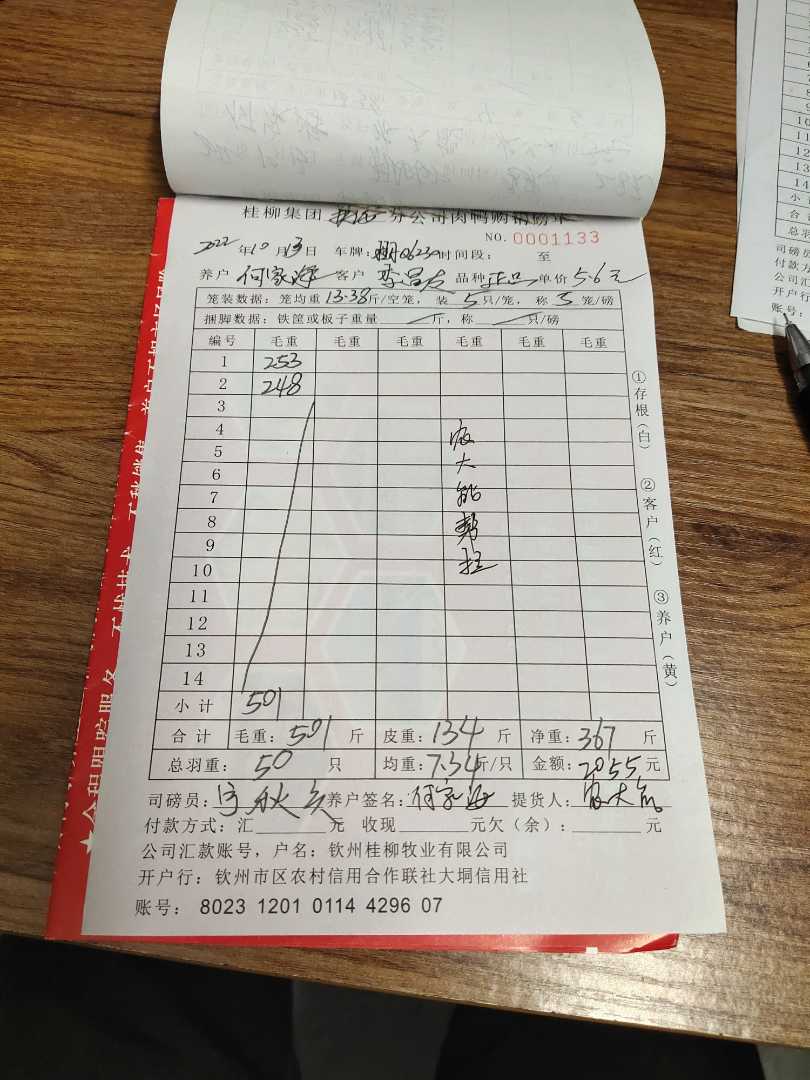 桂柳集团 分公司肉鸭购销磅单
NO. 0001133
2022年10月13日 车牌: 时间段: 至
养户 何家海 客户 李昌友 品种 正品 单价 5.6元
笼装数据: 笼均重 13.38斤/空笼, 装 5 只/笼, 称 5 笼/磅
捆脚数据: 铁筐或板子重量 斤, 称 只/磅
编号 毛重 毛重 毛重 毛重 毛重 毛重
1 253
2 248
3
4
5
6
7
8
9
10
11
12
13
14
大
帮
拉
小计 501
合计 毛重: 501 斤 皮重: 134 斤 净重: 367 斤
总羽重: 50 只 均重: 7.34斤/只 金额: 2055元
司磅员: 养户签名: 何家海 提货人:
付款方式: 汇 元 收现 元欠(余): 元
公司汇款账号, 户名: 钦州桂柳牧业有限公司
开户行: 钦州市区农村信用合作联社大垌信用社
账号: 8023 1201 0114 4296 07
①存根(白)
②客户(红)
③养户(黄)
10
11
12
13
14
小
合
总羽
司磅员
付款方
公司汇
开户行
账号: